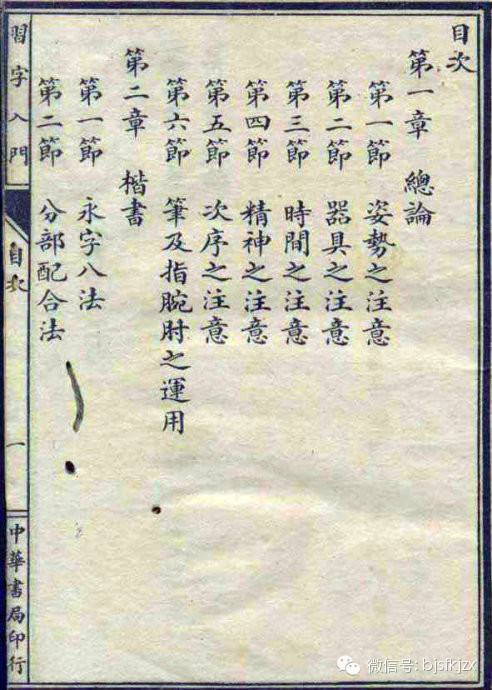 目次
第一章 總論
第一節 姿勢之注意
第二節 器具之注意
第三節 時間之注意
第四節 精神之注意
第五節 次序之注意
第六節 筆及指腕肘之運用
第二章 楷書
第一節 永字八法
第二節 分部配合法
習字入門
目次
一
中華書局印行
微信号: bjsfkjzx